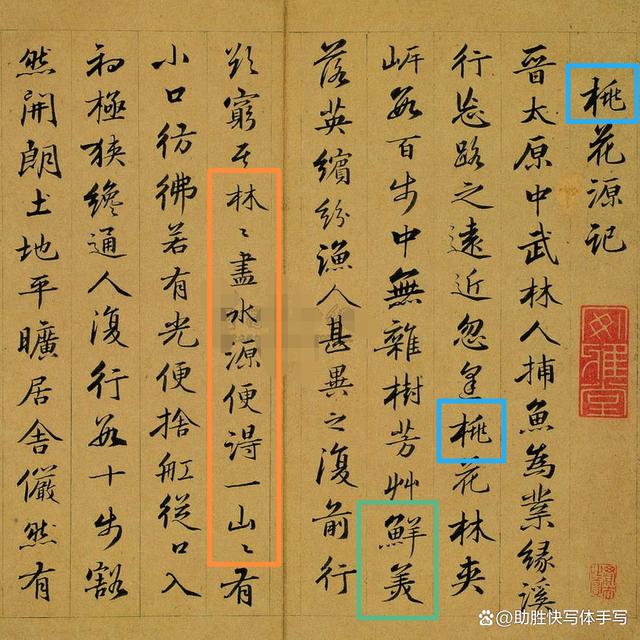 桃花源記
晉太原中武林人捕魚為業緣溪
行忘路之遠近忽逢桃花林夾
岸數百步中無雜樹芳艸鮮美
落英繽紛漁人甚異之復前行
欲窮其林〻盡水源便得一山〻有
小口彷彿若有光便捨舡從口入
初極狹纔通人復行數十步豁
然開朗土地平曠居舍儼然有
助胜快写体手写